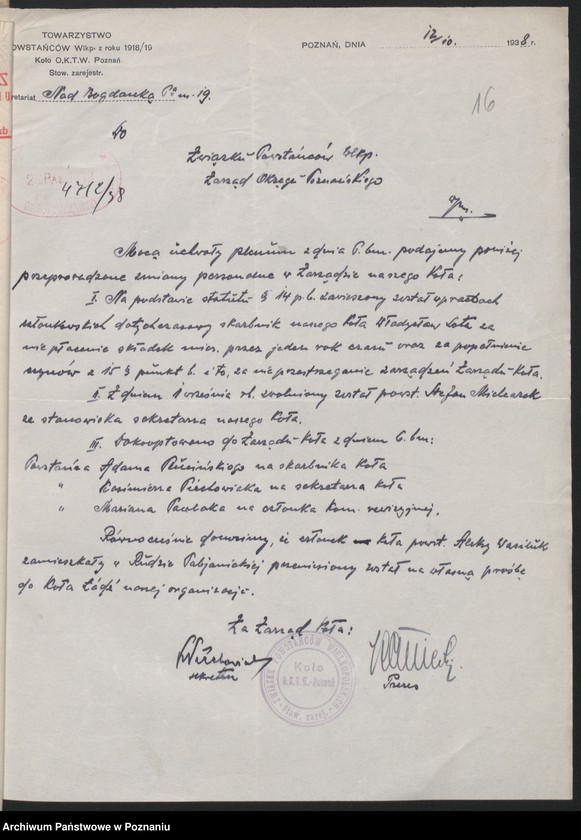 TOWARZYSTWO
OWSTAŃCÓW Wlkp. z roku 1918/19
Koło O.K.T.W. Poznań
Stow. zarejestr.
retariat Nad Bogdanką m. 19.
POZNAŃ, DNIA 12/10. 1938 r.
16
Do
Związku Powstańców Wlkp.
Zarząd Okręgu Poznańskiego
4712/38
w/m.
Mocą uchwały plenum z dnia 6. bm. podajemy poniżej
przeprowadzone zmiany personalne w Zarządzie naszego Koła:
I. Na podstawie statutu § 14 p. b. zawieszony został w prawach
członkowskich dotychczasowy skarbnik naszego Koła Władysław za
nie płacenie składek mies. przez jeden rok czasu oraz za popełnienie
czynów z 15 § punkt b. i to, za nie przestrzeganie zarządzeń Zarządu Koła.
II. Z dniem 1 września rb. zwolniony został powst. Stefan Mielcarek
ze stanowiska sekretarza naszego Koła.
III. Dokooptowano do Zarządu Koła z dniem 6. bm:
Powstańca Adama Rucińskiego na skarbnika Koła
" Kazimierza Piechowiaka na sekretarza Koła
" Mariana Pawlaka na członka Kom. rewizyjnej.
Równocześnie donosimy, iż członek Koła powst. Aleksy Wasiluk
zamieszkały w Rudzie Pabjanickiej przeniesiony został na własną prośbę
do Koła Łódź naszej organizacji.
Za Zarząd Koła:
sekretarz
Prezes
ZWIĄZEK POWSTAŃCÓW WIELKOPOLSKICH
Koło
O.K.T.W.-Poznań
Stow. zarej.
Archiwum Państwowe w Poznaniu